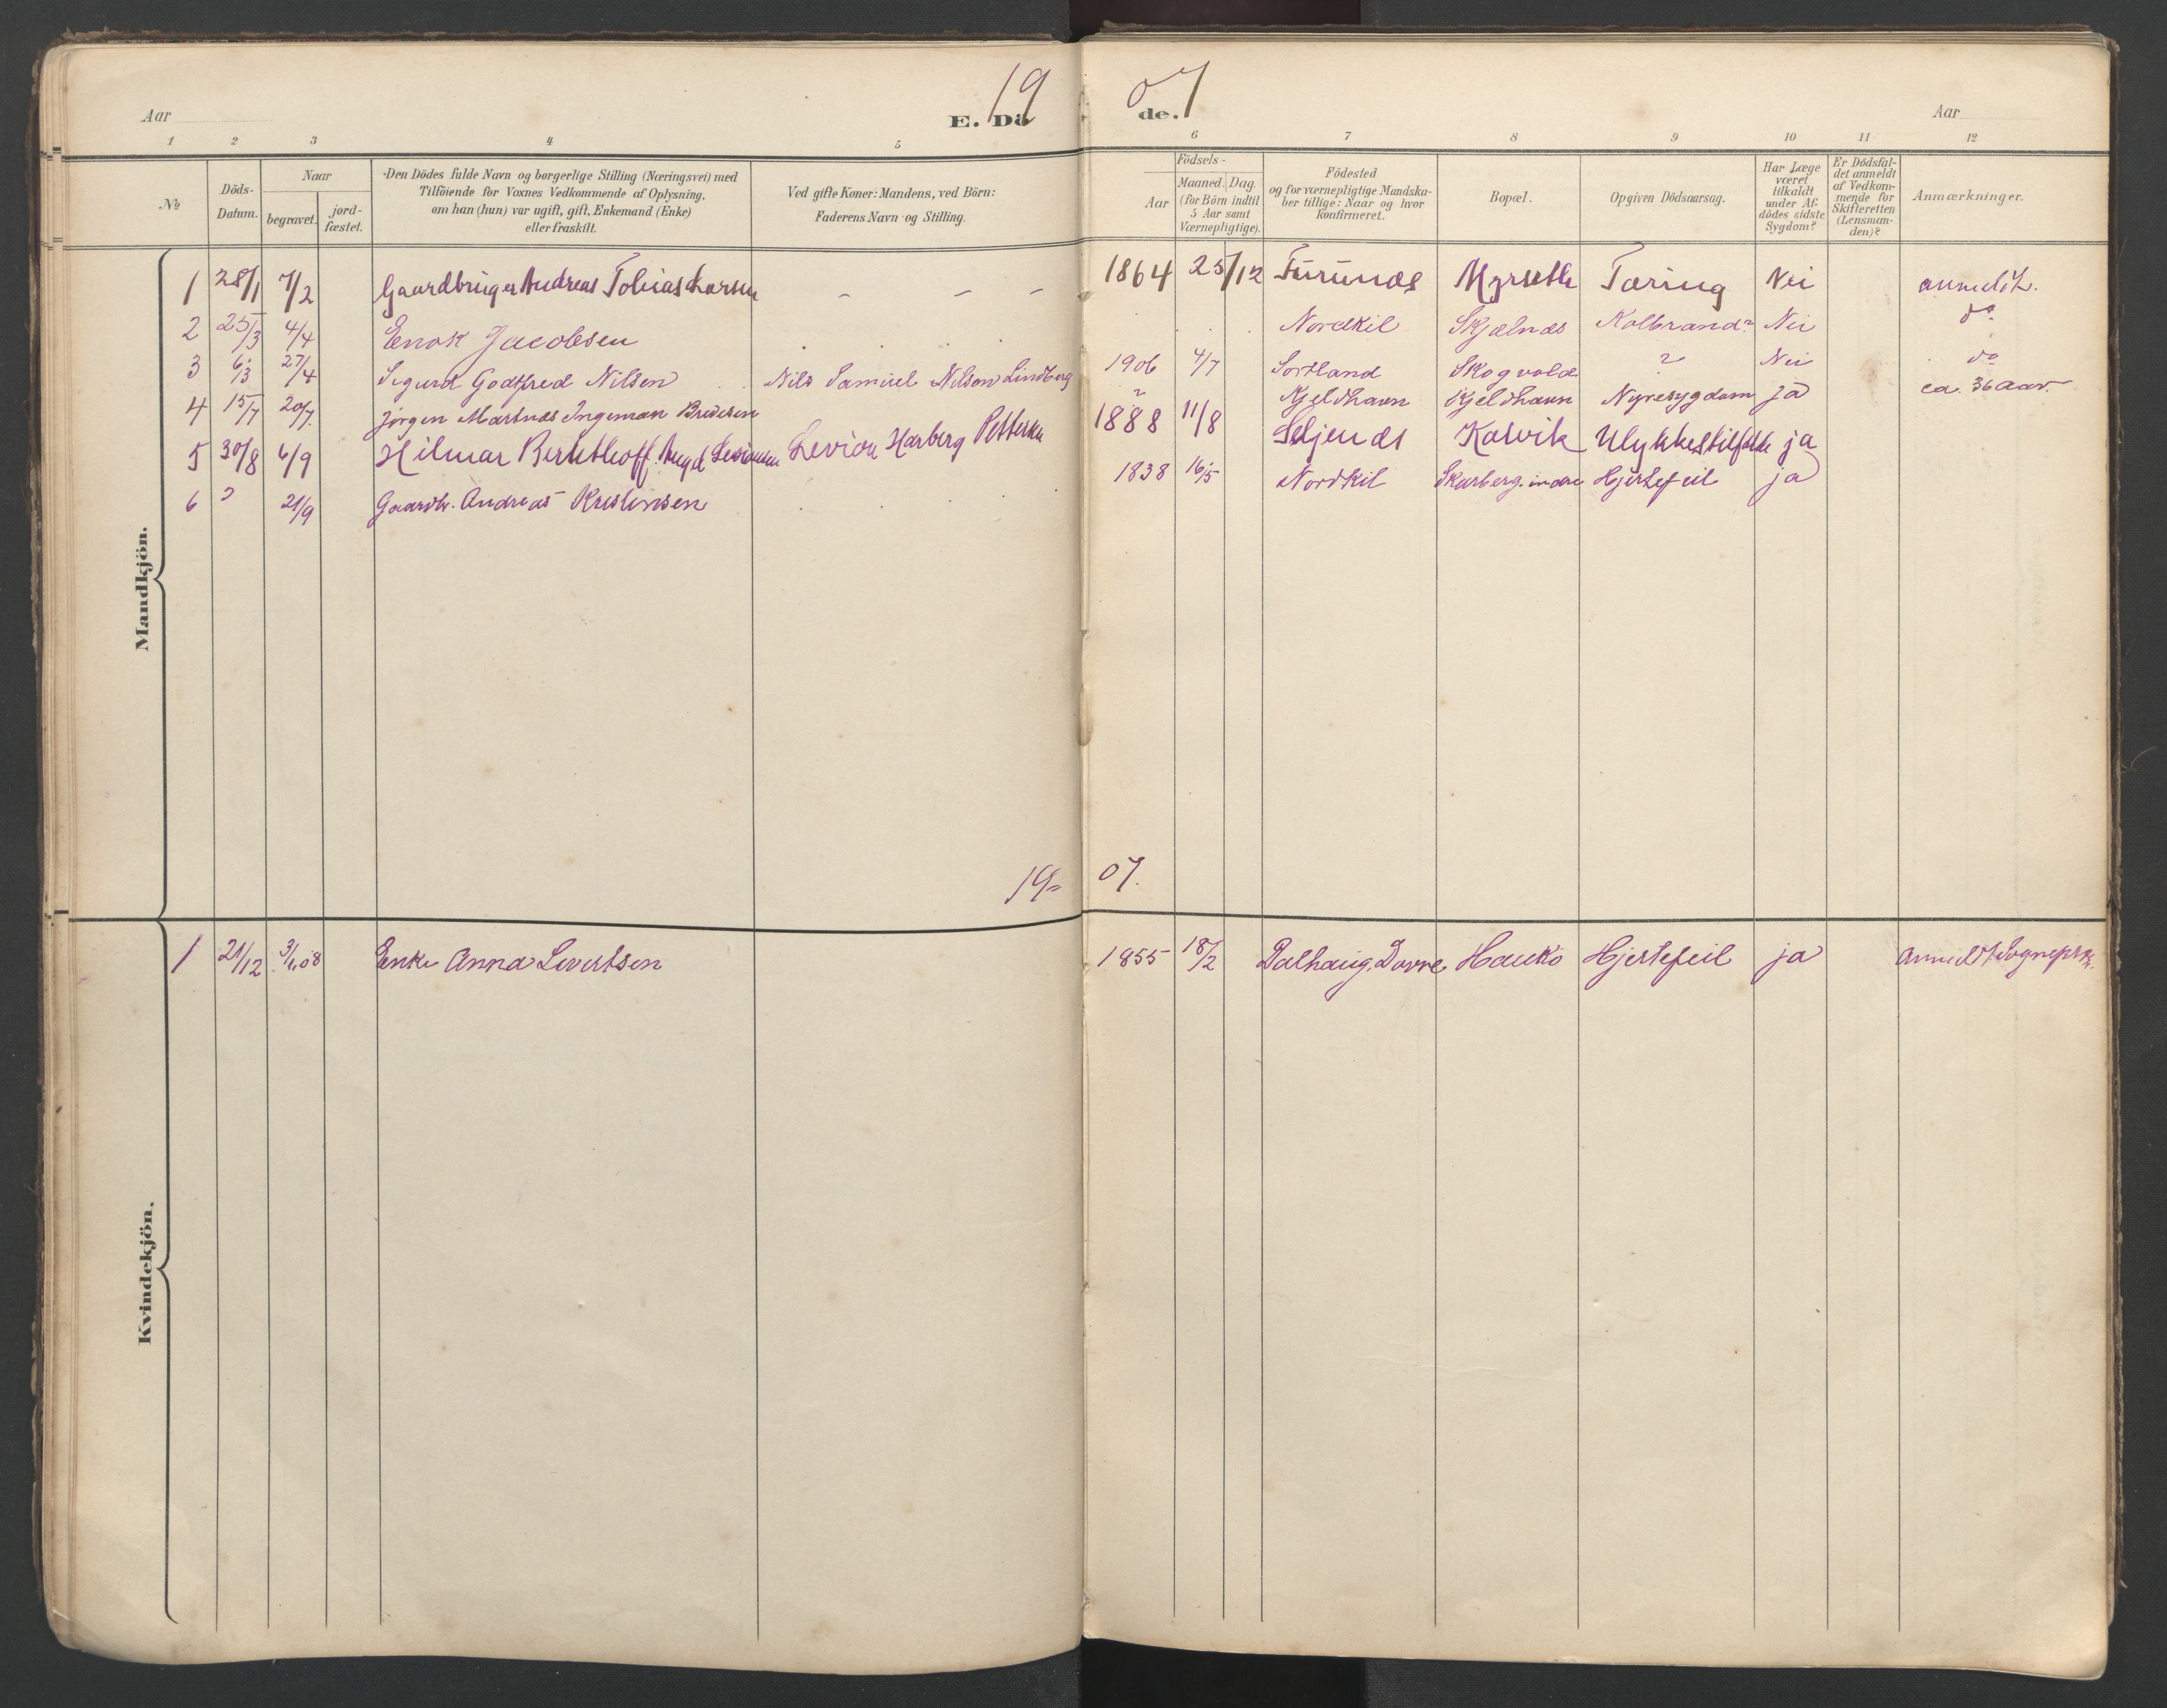 19 07
Aar E. Dö de. Aar
1 2 3 4 5 6 7 8 9 10 11 12
No
Döds-
Datum.
Naar
begravet.
jord-
fæstet.
Den Dödes fulde Navn og borgerlige Stilling (Næringsvei) med
Tilföiende for Voxnes Vedkommende af Oplysning,
om han (hun) var ugift, gift, Enkemand (Enke)
eller fraskilt.
Ved gifte Koner: Mandens, ved Börn:
Faderens Navn og Stilling.
Födsels-
Aar
Maaned. Dag.
(for Börn indtil
5 Aar samt
Værnepligtige).
Födested
og for værnepligtige Mandska-
ber tillige: Naar og hvor
konfirmeret.
Bopæl.
Opgiven Dödsaarsag.
Har Læge
været
tilkaldt
under Af-
dödes sidste
Sygdom?
Er Dödsfal-
det anmeldt
af Vedkom-
mende for
Skifteretten
(Lensman-
den)?
Anmærkninger.
Mandkjön.
1 28/1 7/2 Gaardbruger Andreas Tobias Larsen - - - 1864 25/12 Furunæs Myrseth Tæring Nei anmeldt.
2 25/3 4/4 Enok Jacobsen Nordkil Skjælnæs Kolbrand? Nei do
3 6/3 27/4 Sigurd Godtfred Nilsen Nils Samuel Nilsen Lindberg 1906 4/7 Sortland Skogvold ? Nei do
4 15/7 20/7. Jörgen Martnæs Ingeman Bredesen ? Kjeldhavn Kjeldhavn Nyresygdom ja ca. 36 aar
5 30/8 6/9 Hilmar Berhthoff Levion Harberg Pettersen 1888 11/8 Seljenæs Kalvik Ulykkestilfælde ja
6 ? 21/9 Gaardbr. Andreas Kristensen 1838 16/5 Nordkil Skarberg indre Hjertefeil ja
19 07.
Kvindekjön.
1 21/12 3/1.08 Enke Anna Sivertsen 1855 18/2 Dalhaug, Dovre Haukö Hjertefeil ja Anmeldt Sognepr.